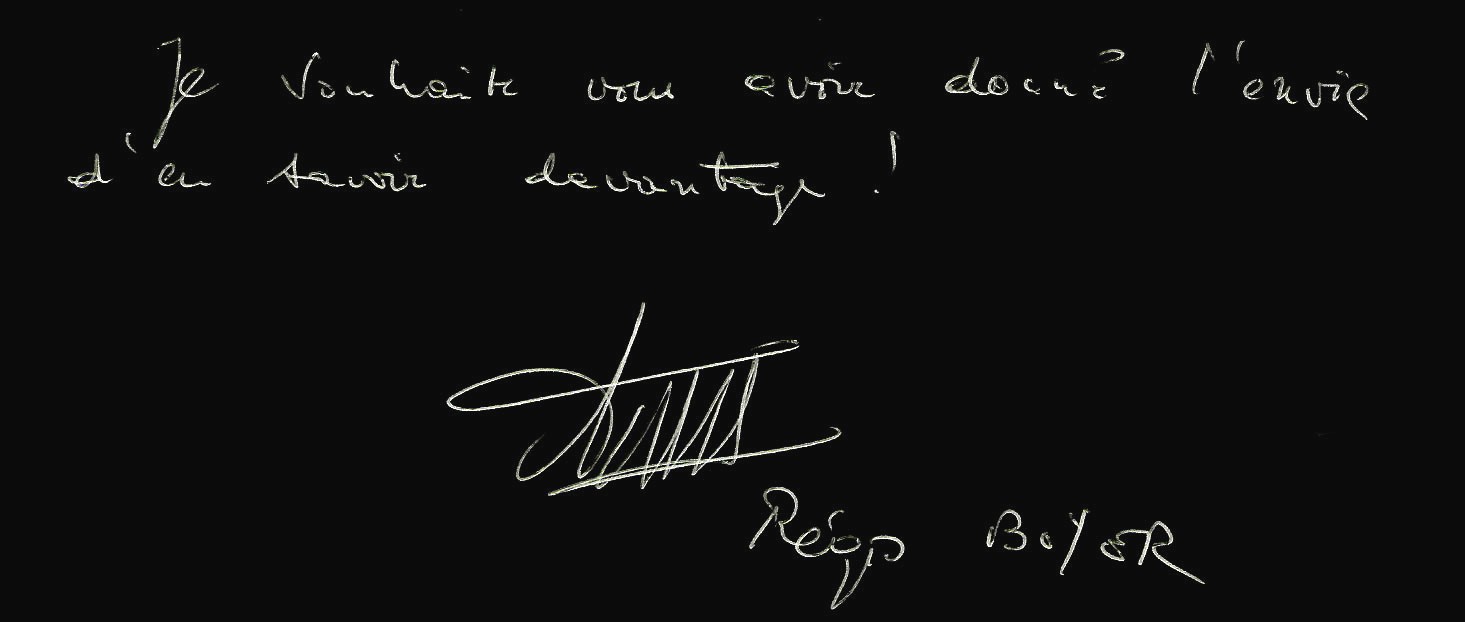 Je souhaite vous avoir donné l'envie
d'en savoir davantage !
Régis BOYER